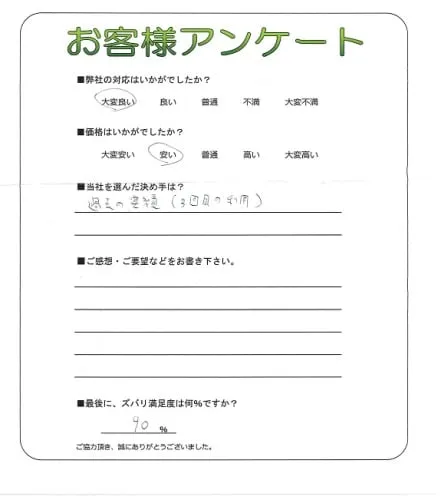 お客様アンケート
■弊社の対応はいかがでしたか?
大変良い 良い 普通 不満 大変不満
■価格はいかがでしたか?
大変安い 安い 普通 高い 大変高い
■当社を選んだ決め手は?
過去の実績(3回目の利用)
■ご感想・ご要望などをお書き下さい。
■最後に、ズバリ満足度は何%ですか?
90 %
ご協力頂き、誠にありがとうございました。